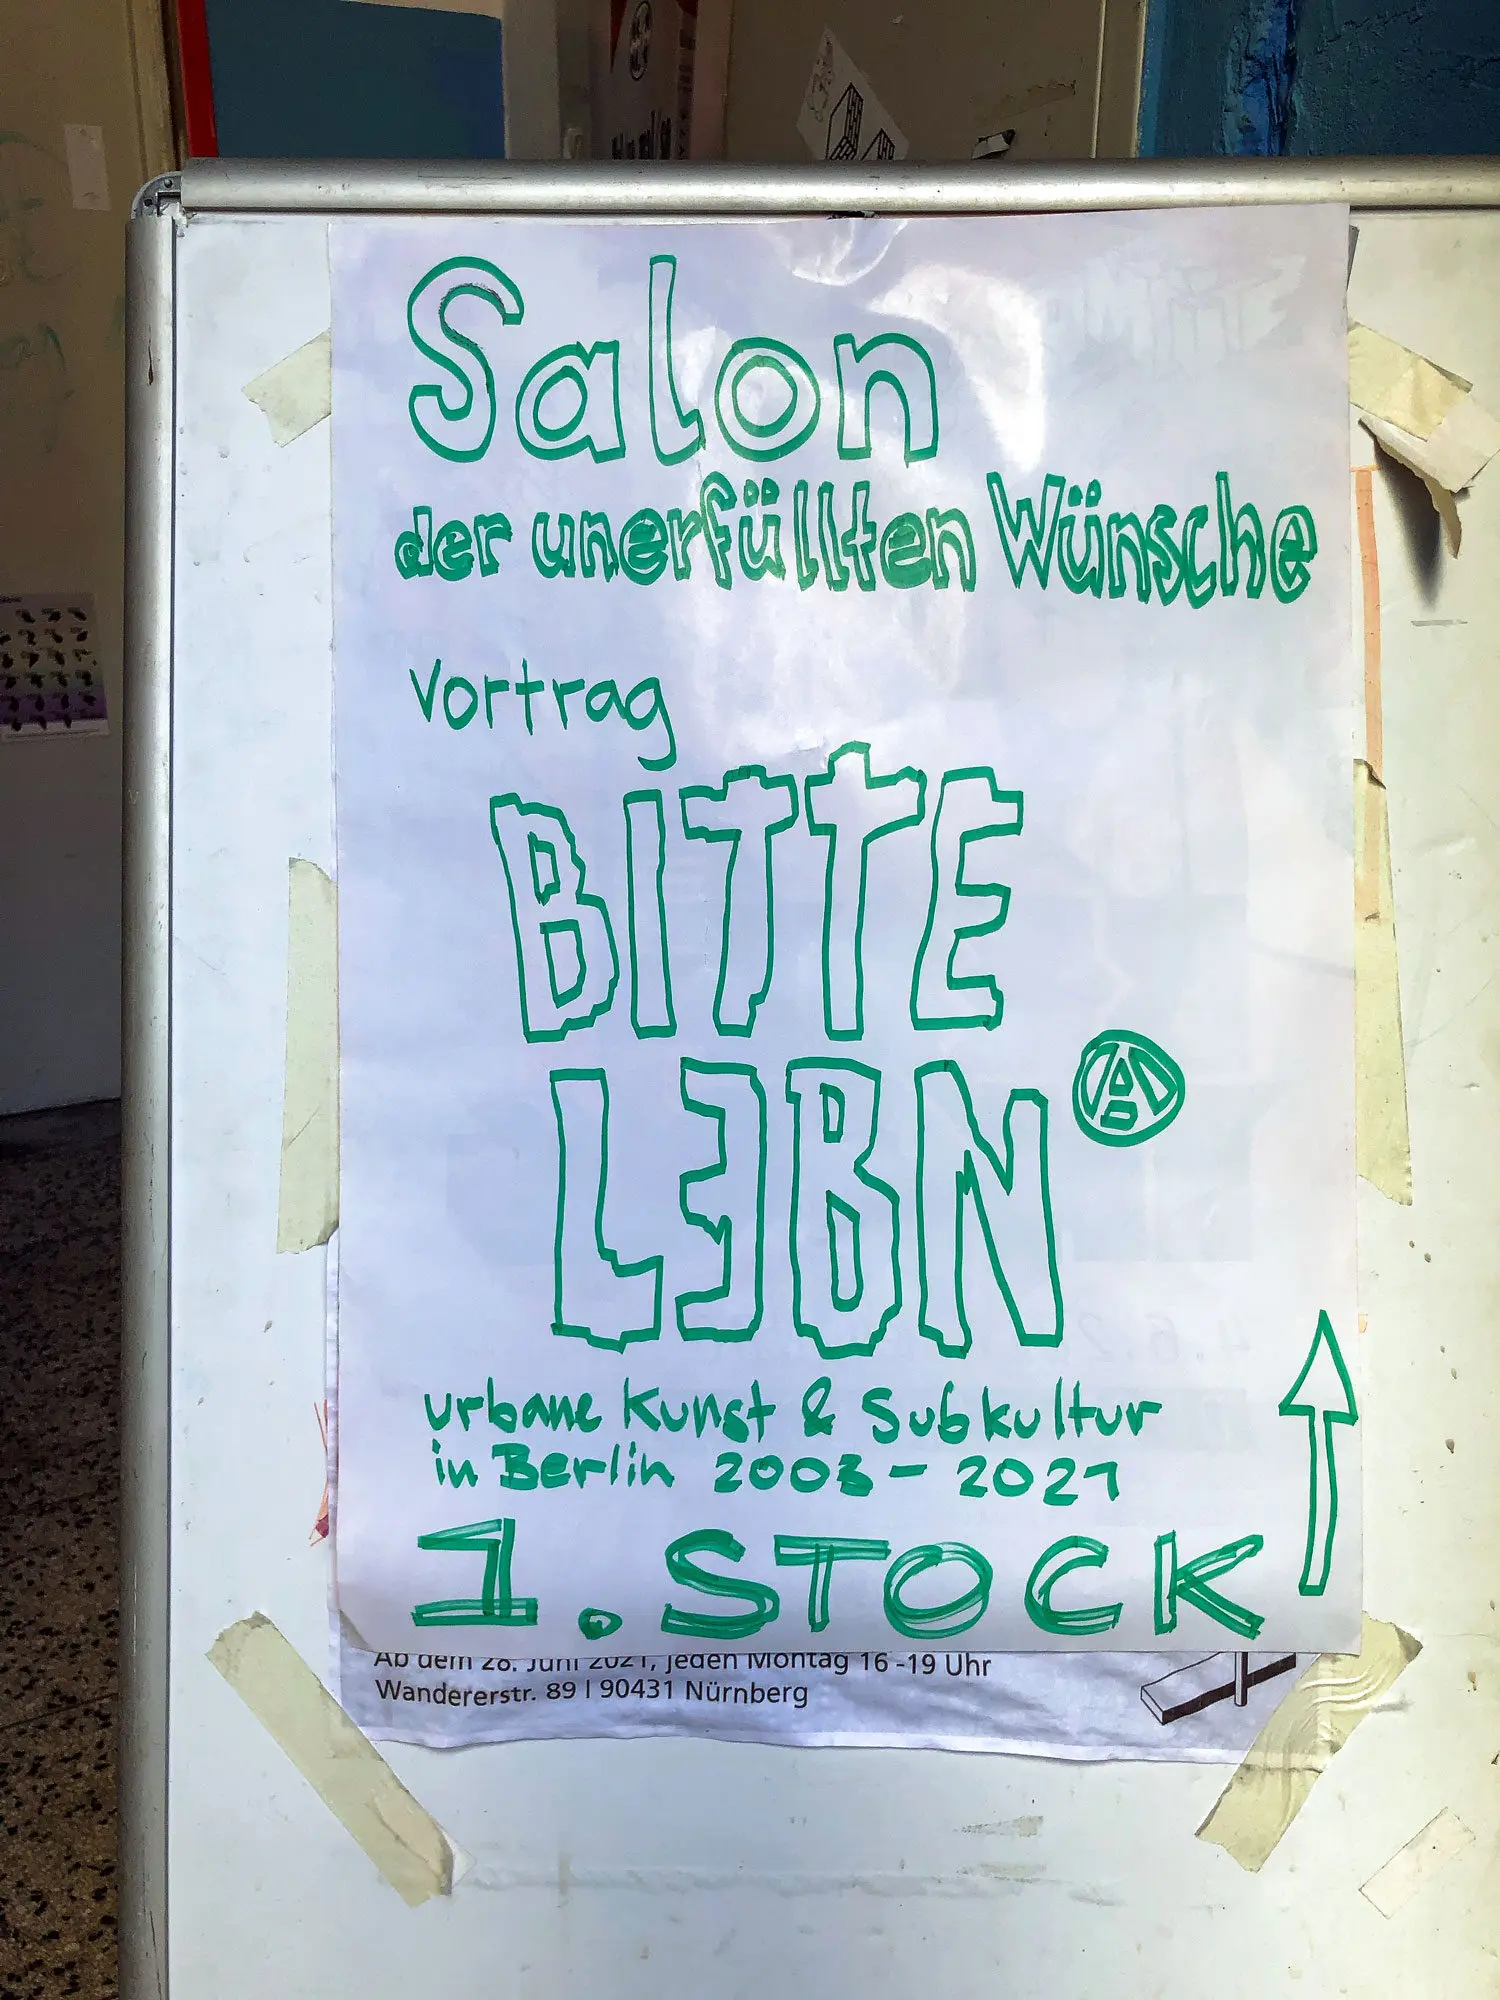 Salon
der unerfüllten Wünsche
Vortrag
BITTE
LEBN
urbane Kunst & Subkultur
in Berlin 2003 - 2021
1. STOCK
Ab dem 28. Juni 2021, jeden Montag 16 -19 Uhr
Wandererstr. 89 | 90431 Nürnberg